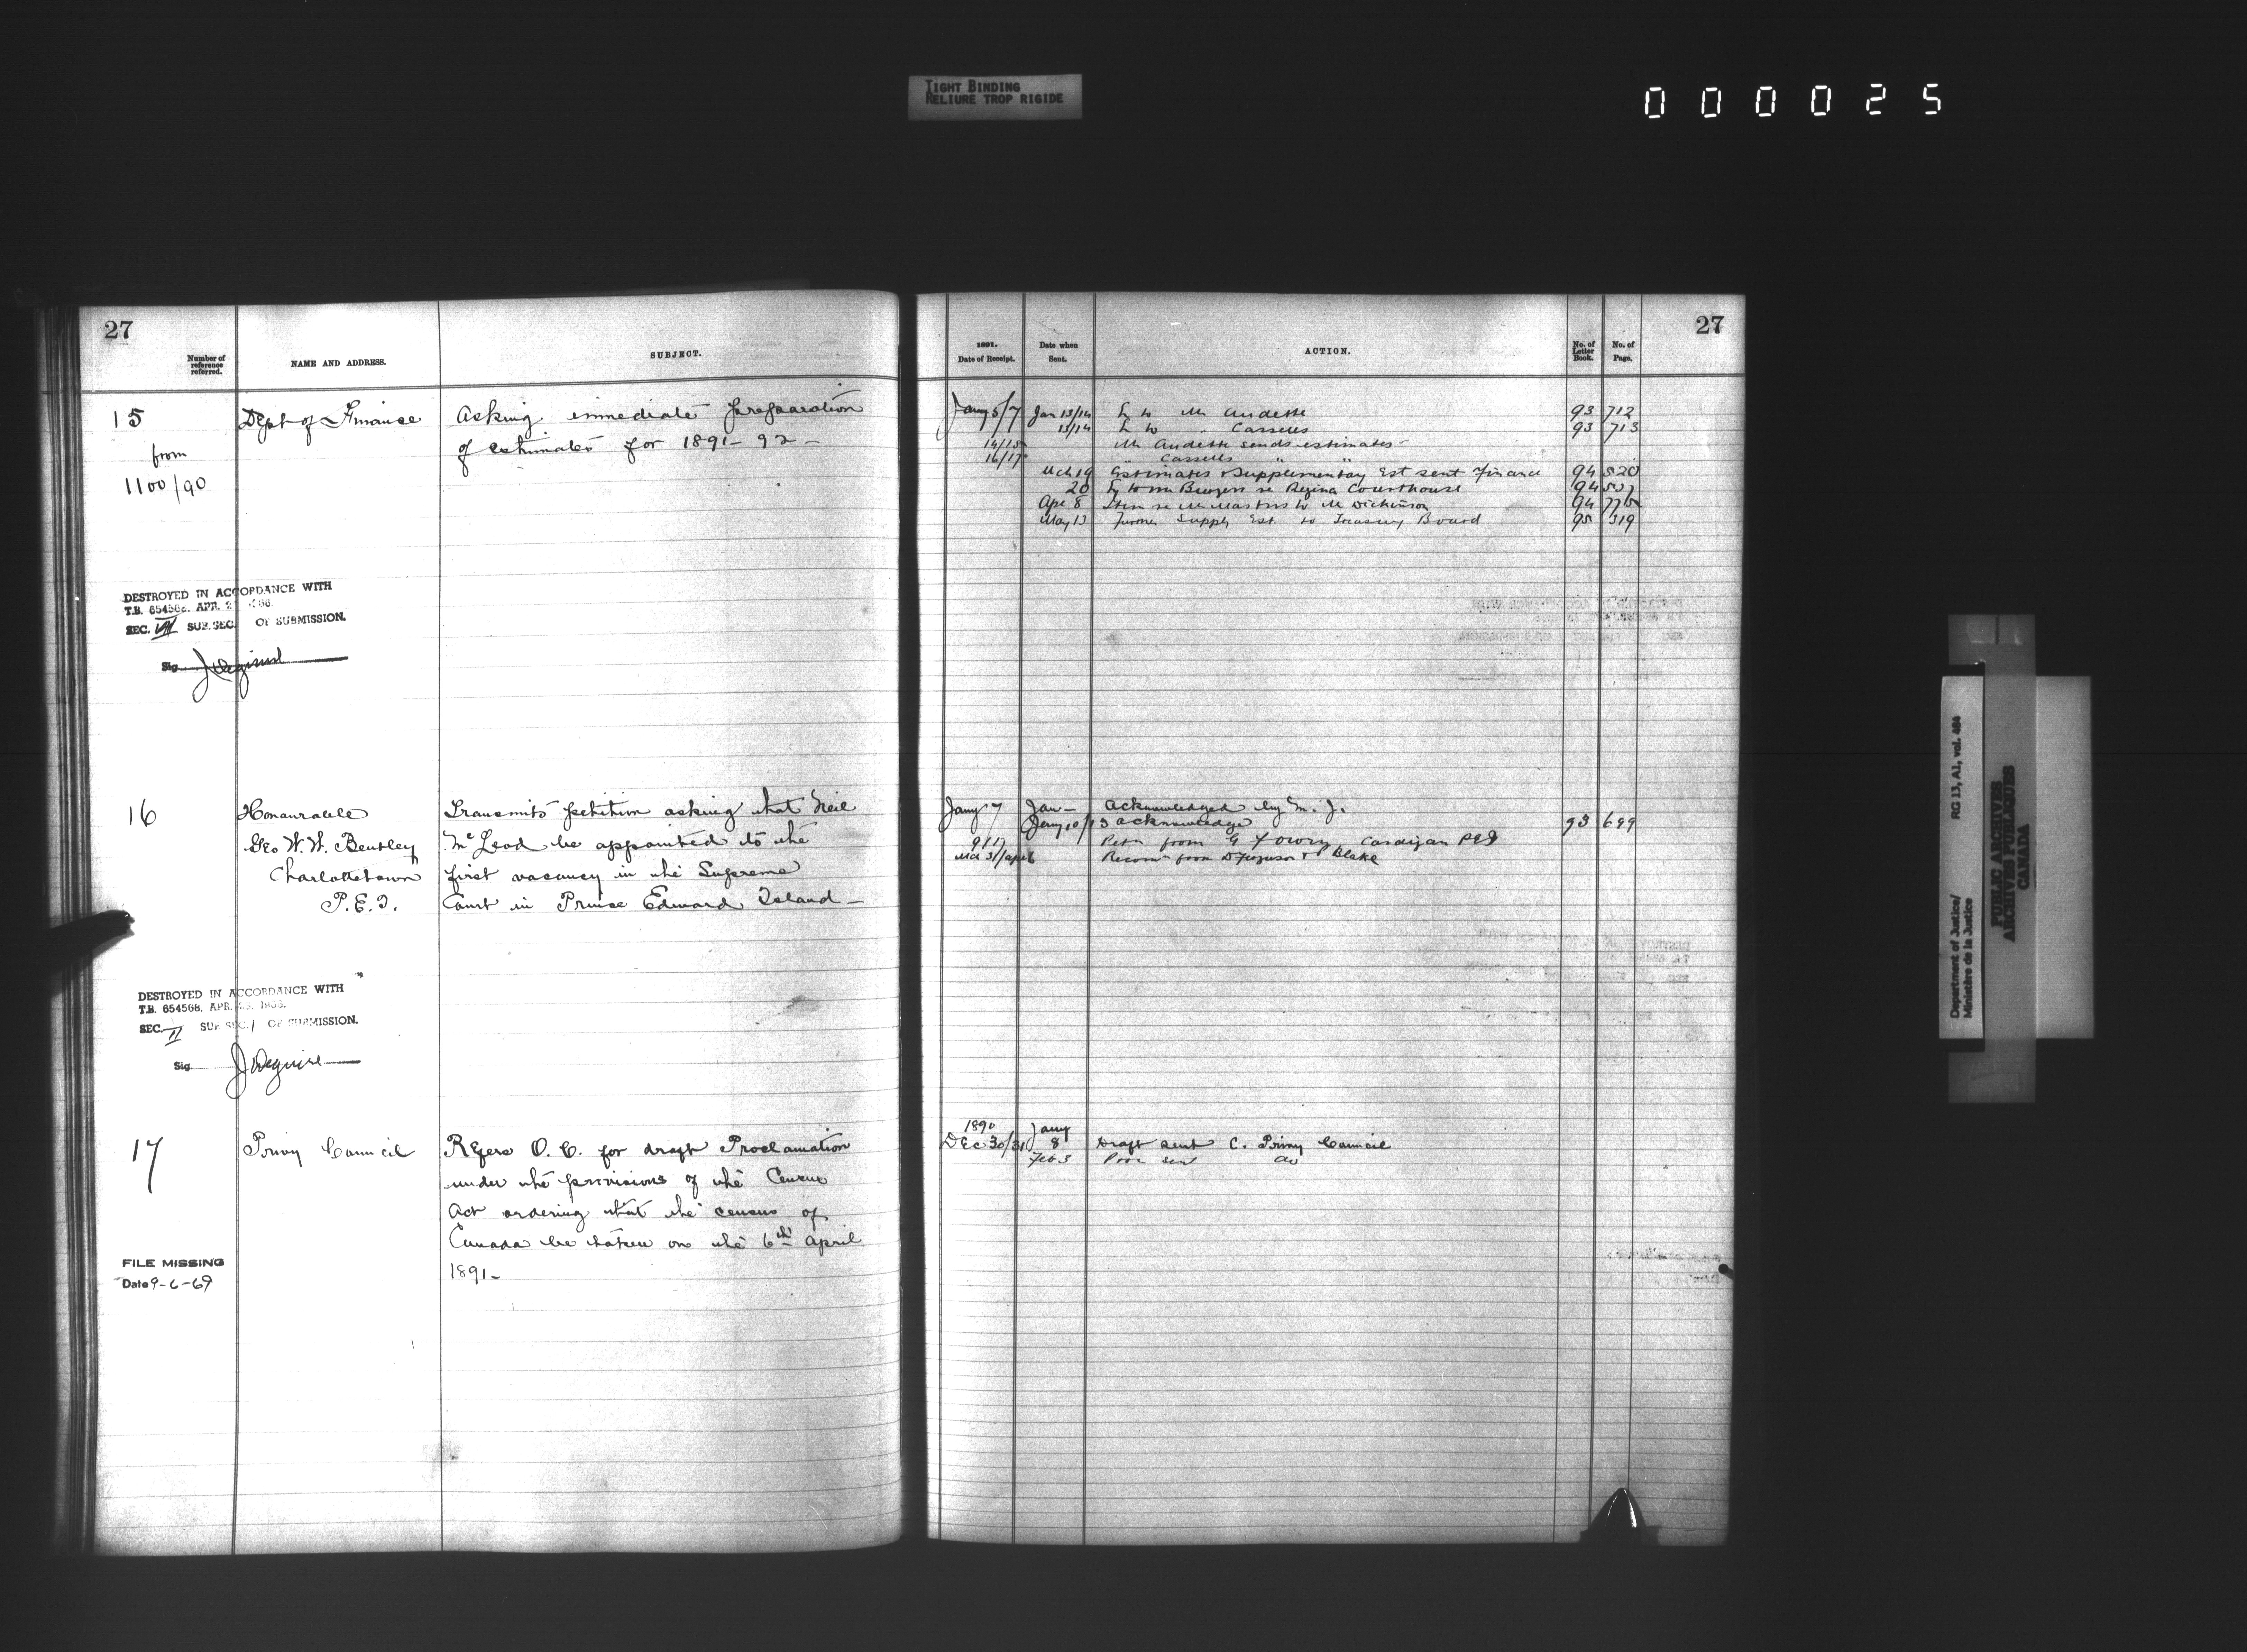 TIGHT BINDING
RELIURE TROP RIGIDE
000025
27
Number of
reference
referred.
NAME AND ADDRESS.
SUBJECT.
15
from
1100/90
Dept of Finance
Asking immediate preparation
of estimates for 1891-92-
DESTROYED IN ACCORDANCE WITH
T.B. 654568. APR. 
SEC. VII SUB. SEC. OF SUBMISSION.
Sig.
16
Honourable
Geo W. W. Bentley
Charlottetown
P.E.I.
Transmits petition asking that Neil
McLeod be appointed to the
first vacancy in the Supreme
Court in Prince Edward Island-
DESTROYED IN ACCORDANCE WITH
T.B. 654568. APR.
SEC. II SUB SEC. 1 OF SUBMISSION.
Sig. J Deguire
17
Privy Council
Refers O. C. for draft Proclamation
under the provisions of the Census
Act ordering that the census of
Canada be taken on the 6th April
1891-
FILE MISSING
Date 9-6-69
27
1891.
Date of Receipt.
Date when
Sent.
ACTION.
No. of
Letter
Book.
No. of
Page.
Jany 5/7 Jan 13/14 L to Mr Audette 93 712
13/14 L to " Cassells 93 713
14/15 Mr Audette sends estimates-
16/17 " Cassells " "
Mch 19 Estimates & Supplementary Est sent Finance 94 520
20 L to Mr Burgess re Regina Courthouse 94
Apr 8 Item re Mr Masters to Mr Dickinson 94 775
May 13 Further Supply Est. to Treasury Board 95 319
Jany 7 Jan- Acknowledged by M. J.
Jany 10/13 acknowledge 93 699
9/17 Petn from G Cardigan PEI
Mch 31/Apl 6 Recomn from D Ferguson & P Blake
1890 Jany
Dec 30/31 8 Draft sent C. Privy Council
Feb 3 sent do
Department of Justice/
Ministère de la Justice
RG 13, A1, vol. 484
PUBLIC ARCHIVES
ARCHIVES PUBLIQUES
CANADA